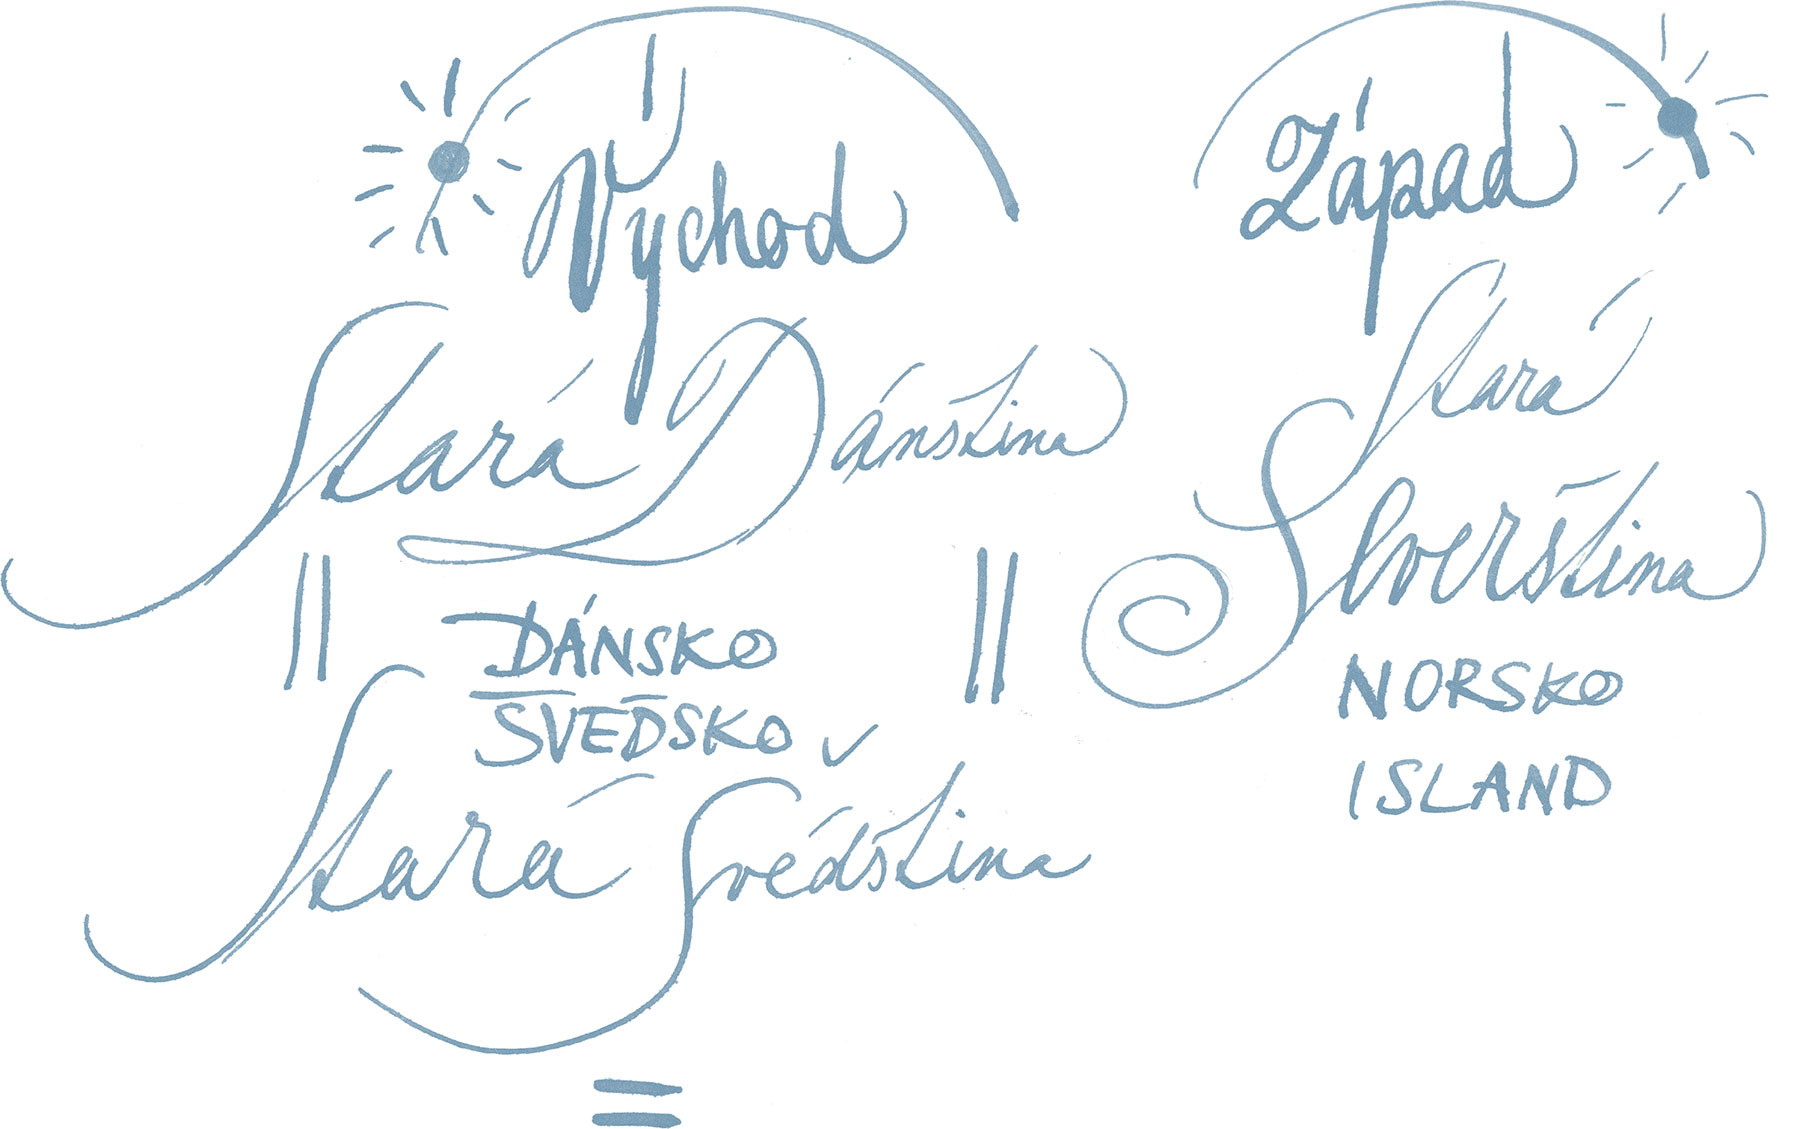 Východ
Stará Dánština
DÁNSKO
ŠVÉDSKO
Stará Švédština
=
Západ
Stará
Severština
NORSKO
ISLAND